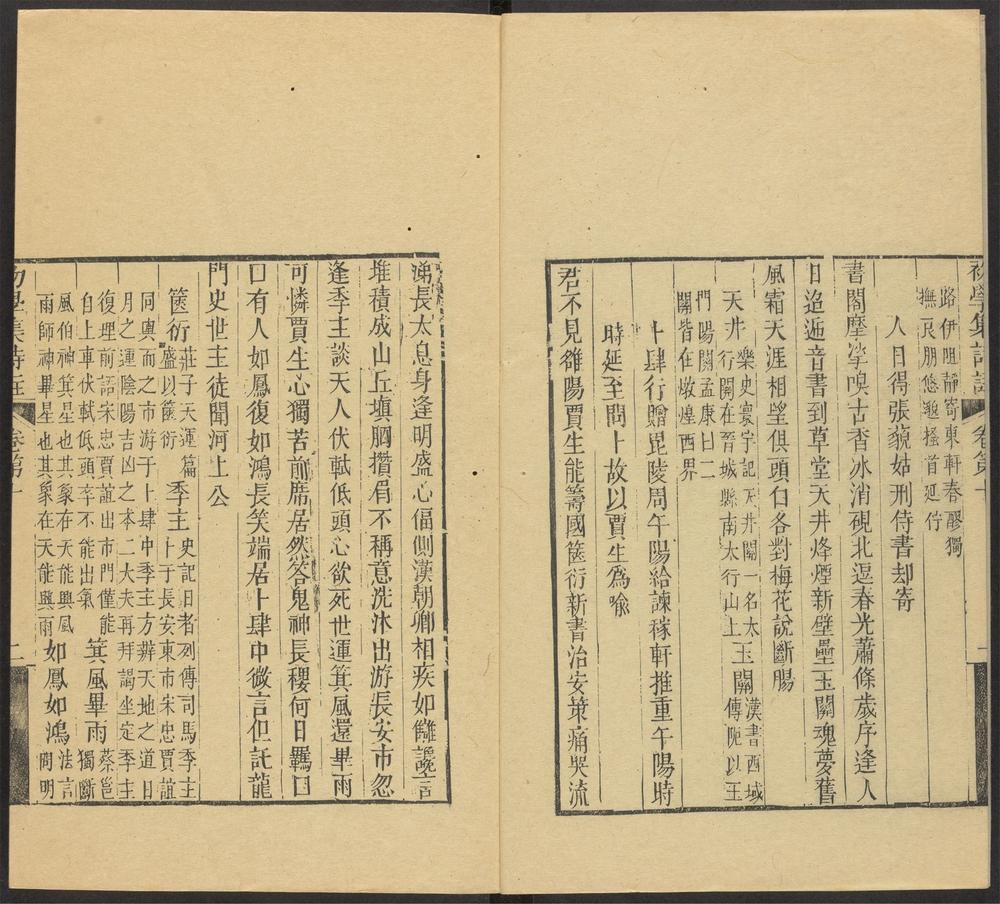 初學集詩註 卷第十 一
路伊阻靜寄東軒春醪獨
撫良朋悠邈搔首延佇
人日得張藐姑刑侍書却寄
書閣摩挲嗅古香冰消硯北逗春光蕭條歲序逢人
日迢遞音書到草堂天井烽煙新壁壘玉關魂夢舊
風霜天涯相望俱頭白各對梅花說斷腸
天井 樂史寰宇記天井關一名太
行關在晉城縣南太行山上 玉關 漢書西域
傳阸以玉
門陽關孟康曰二
關皆在燉煌西界
卜肆行贈毘陵周午陽給諫稼軒推重午陽時
時延至問卜故以賈生爲喩
君不見雒陽賈生能籌國篋衍新書治安策痛哭流
涕長太息身逢明盛心偪側漢朝卿相疾如讎讒言
堆積成山丘塡胸攢眉不稱意洗沐出游長安市忽
逢季主談天人伏軾低頭心欲死世運箕風還畢雨
可憐賈生心獨苦前席居然答鬼神長稷何日羈
口有人如鳳復如鴻長笑端居卜肆中微言但託龍
門史世主徒聞河上公
篋衍 莊子天運篇
盛以篋衍 季主 史記日者列傳司馬季主
卜于長安東市宋忠賈誼
同輿而之市游于卜肆中季主方辨天地之道日
月之運陰陽吉凶之本二大夫再拜謁坐定季主
復理前語宋忠賈誼出市門僅能
自上車伏軾低頭卒不能出氣 箕風畢雨 蔡邕
獨斷
風伯神箕星也其象在天能興風
雨師神畢星也其象在天能興雨 如鳳如鴻 法言
問明
初學集詩註 卷第十 二